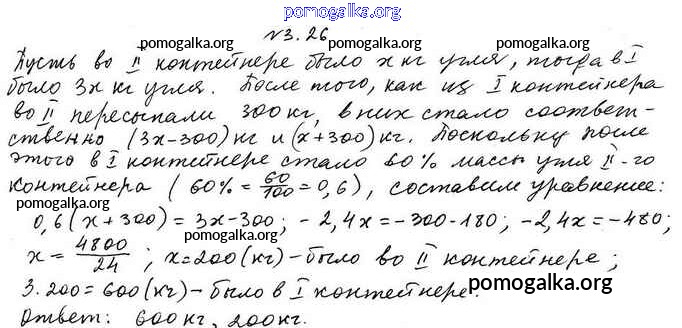 pomogalka.org
№3.26
pomogalka.org pomogalka.org
Пусть во II контейнере было x кг угля, тогда в I
было 3x кг угля. После того, как из I контейнера
во II пересыпали 300 кг, в них стало соответ-
pomogalka.org pomogalka.org
ственно (3x-300) кг и (x+300) кг. Поскольку после
этого в I контейнере стало 60% массы угля II-го
контейнера (60% = 60/100 = 0,6), составим уравнение:
pomogalka.org
0,6(x+300) = 3x-300; -2,4x = -300-180; -2,4x = -480;
pomogalka.org
x = 4800/24; x=200 (кг) - было во II контейнере;
3·200=600 (кг) - было в I контейнере.
pomogalka.org
Ответ: 600 кг, 200 кг.